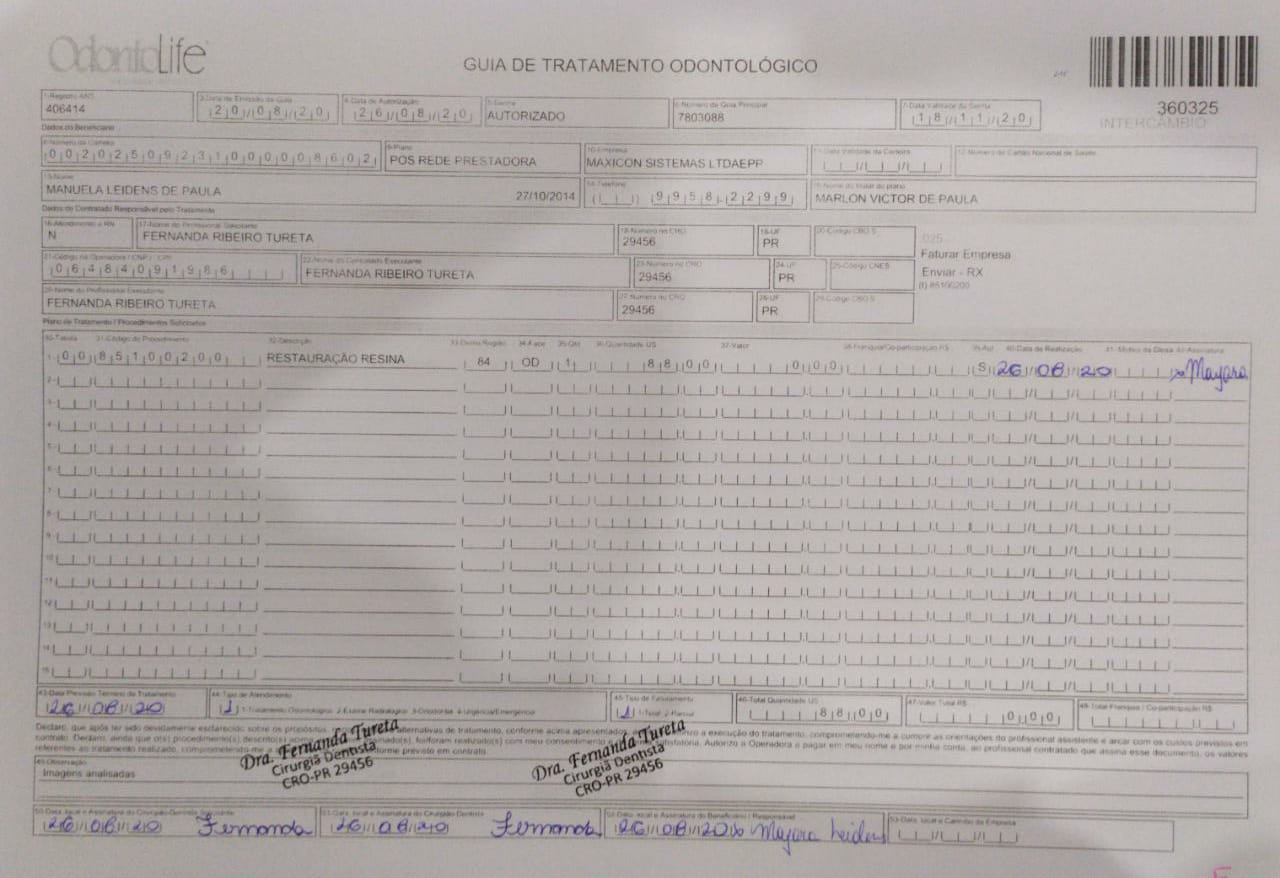 OdontoLife
GUIA DE TRATAMENTO ODONTOLÓGICO
360325
INTERCÂMBIO
1-Registro ANS
406414
3-Data de Emissão da Guia
20/08/20
4-Data de Autorização
26/08/20
5-Senha
AUTORIZADO
6-Número da Guia Principal
7803088
7-Data Validade da Senha
18/11/20
Dados do Beneficiário
8-Número da Carteira
00202509231000008602
9-Plano
POS REDE PRESTADORA
10-Empresa
MAXICON SISTEMAS LTDAEPP
11-Data Validade da Carteira
12-Número do Cartão Nacional de Saúde
13-Nome
MANUELA LEIDENS DE PAULA 27/10/2014
14-Telefone
( ) 9958-2299
15-Nome do titular do plano
MARLON VICTOR DE PAULA
Dados do Contratado Responsável pelo Tratamento
16-Atendimento a RN
N
17-Nome do Profissional Solicitante
FERNANDA RIBEIRO TURETA
18-Número no CRO
29456
19-UF
PR
20-Código CBO S
025
Faturar Empresa
Enviar - RX
(I) 85100200
21-Código na Operadora / CNPJ / CPF
06484091986
22-Nome do Contratado Executante
FERNANDA RIBEIRO TURETA
23-Número no CRO
29456
24-UF
PR
25-Código CNES
26-Nome do Profissional Executante
FERNANDA RIBEIRO TURETA
27-Número no CRO
29456
28-UF
PR
29-Código CBO S
Plano de Tratamento / Procedimentos Solicitados
30-Tabela 31-Código do Procedimento 32-Descrição 33-Dente/Região 34-Face 35-Qtd 36-Quantidade US 37-Valor 38-Franquia/Co-participação R$ 39-Aut 40-Data de Realização 41-Motivo da Glosa 42-Assinatura
1- 00 85100200 RESTAURAÇÃO RESINA 84 OD 1 88,00 0,00 S 26/08/20 x Mayara
2-
3-
4-
5-
6-
7-
8-
9-
10-
11-
12-
13-
14-
15-
43-Data Previsão Término do Tratamento
26/08/20
44-Tipo de Atendimento
1 1-Tratamento Odontológico 2-Exame Radiológico 3-Ortodontia 4-Urgência/Emergência
45-Tipo de Faturamento
1 1-Total 2-Parcial
46-Total Quantidade US
88,00
47-Valor Total R$
0,00
48-Total Franquia / Co-participação R$
Declaro, que após ter sido devidamente esclarecido sobre os propósitos, alternativas de tratamento, conforme acima apresentados, a execução do tratamento, comprometendo-me a cumprir as orientações do profissional assistente e arcar com os custos previstos em
contrato. Declaro, ainda que o(s) procedimento(s) descrito(s) acima, foi/foram realizado(s) com meu consentimento e satisfatória. Autorizo a Operadora a pagar em meu nome e por minha conta, ao profissional contratado que assina esse documento, os valores
referentes ao tratamento realizado, comprometendo-me a conforme previsto em contrato.
Dra. Fernanda Tureta
Cirurgiã Dentista
CRO-PR 29456
Dra. Fernanda Tureta
Cirurgiã Dentista
CRO-PR 29456
49-Observação
Imagens analisadas
50-Data, local e Assinatura do Cirurgião-Dentista Solicitante
26/08/20 Fernanda
51-Data, local e Assinatura do Cirurgião-Dentista
26/08/20 Fernanda
52-Data, local e Assinatura do Beneficiário / Responsável
26/08/20 x Mayara Leidens
53-Data, local e Carimbo da Empresa